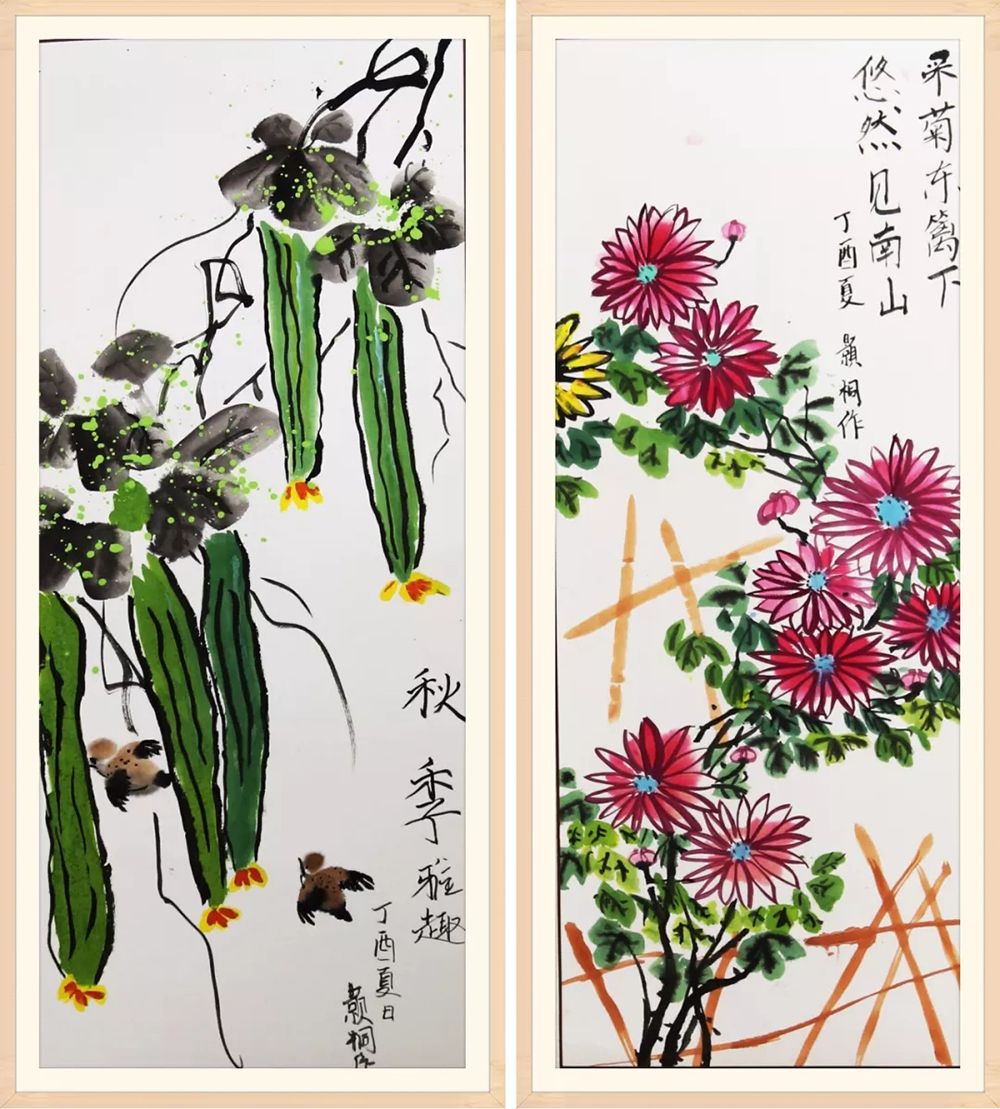 秋季雅趣
丁酉夏日
颢桐作
采菊东篱下
悠然见南山
丁酉夏 颢桐作